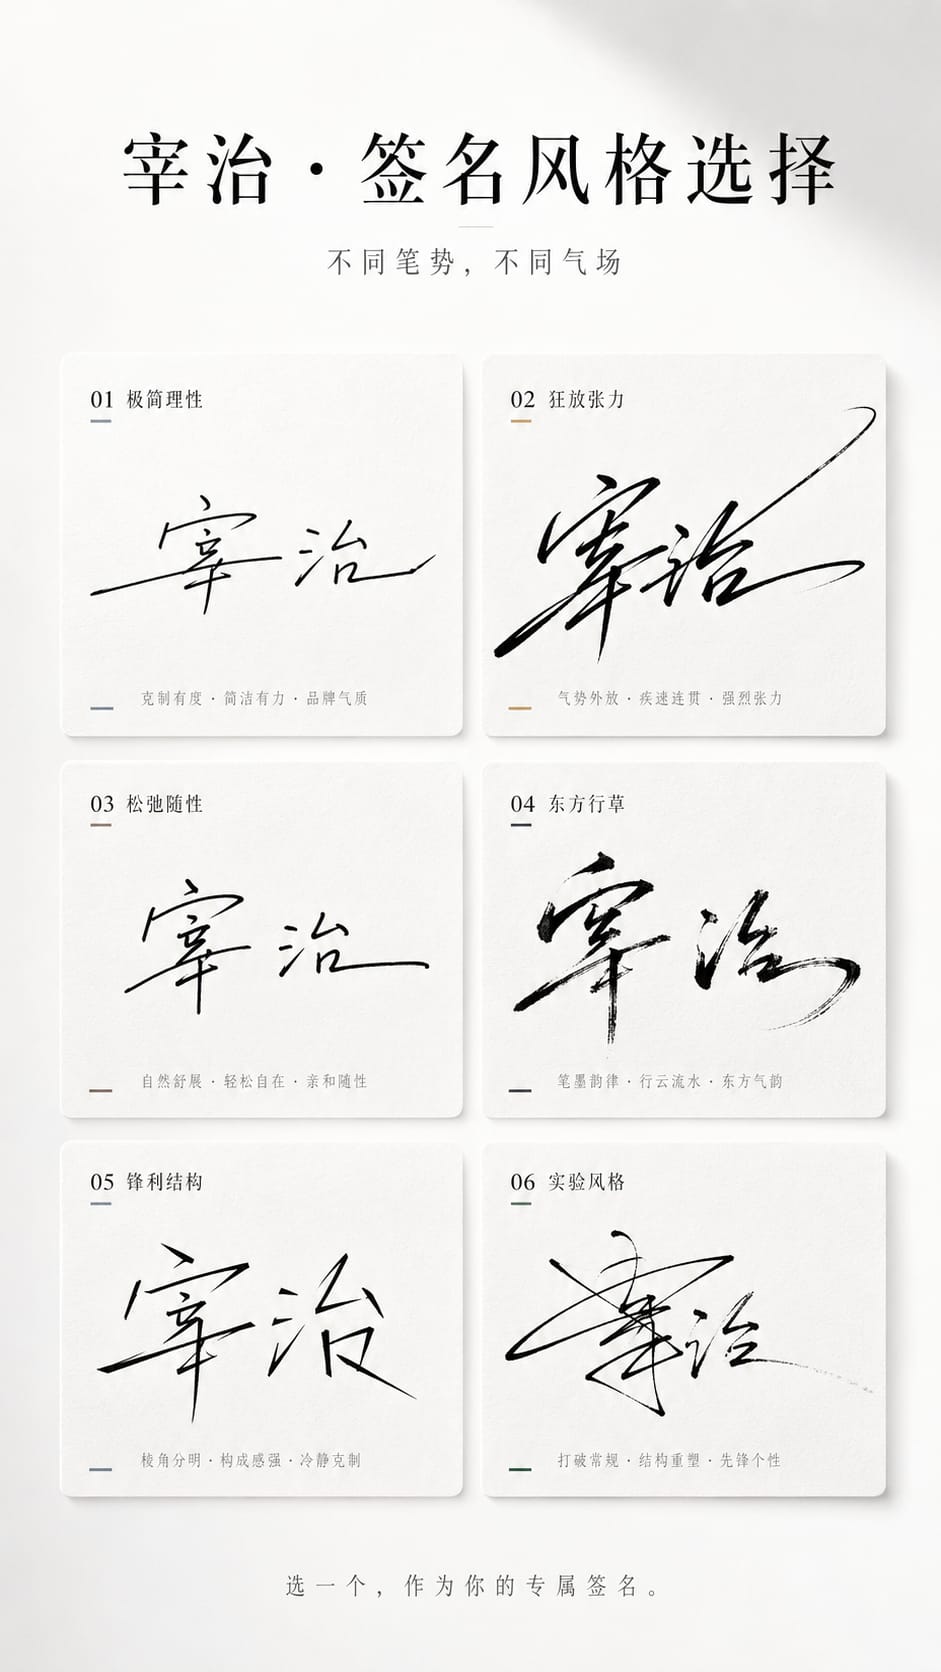 宰治·签名风格选择
不同笔势，不同气场
01 极简理性
宰治
克制有度·简洁有力·品牌气质
02 狂放张力
宰治
气势外放·疾速连贯·强烈张力
03 松弛随性
宰治
自然舒展·轻松自在·亲和随性
04 东方行草
宰治
笔墨韵律·行云流水·东方气韵
05 锋利结构
宰治
棱角分明·构成感强·冷静克制
06 实验风格
宰治
打破常规·结构重塑·先锋个性
选一个，作为你的专属签名。